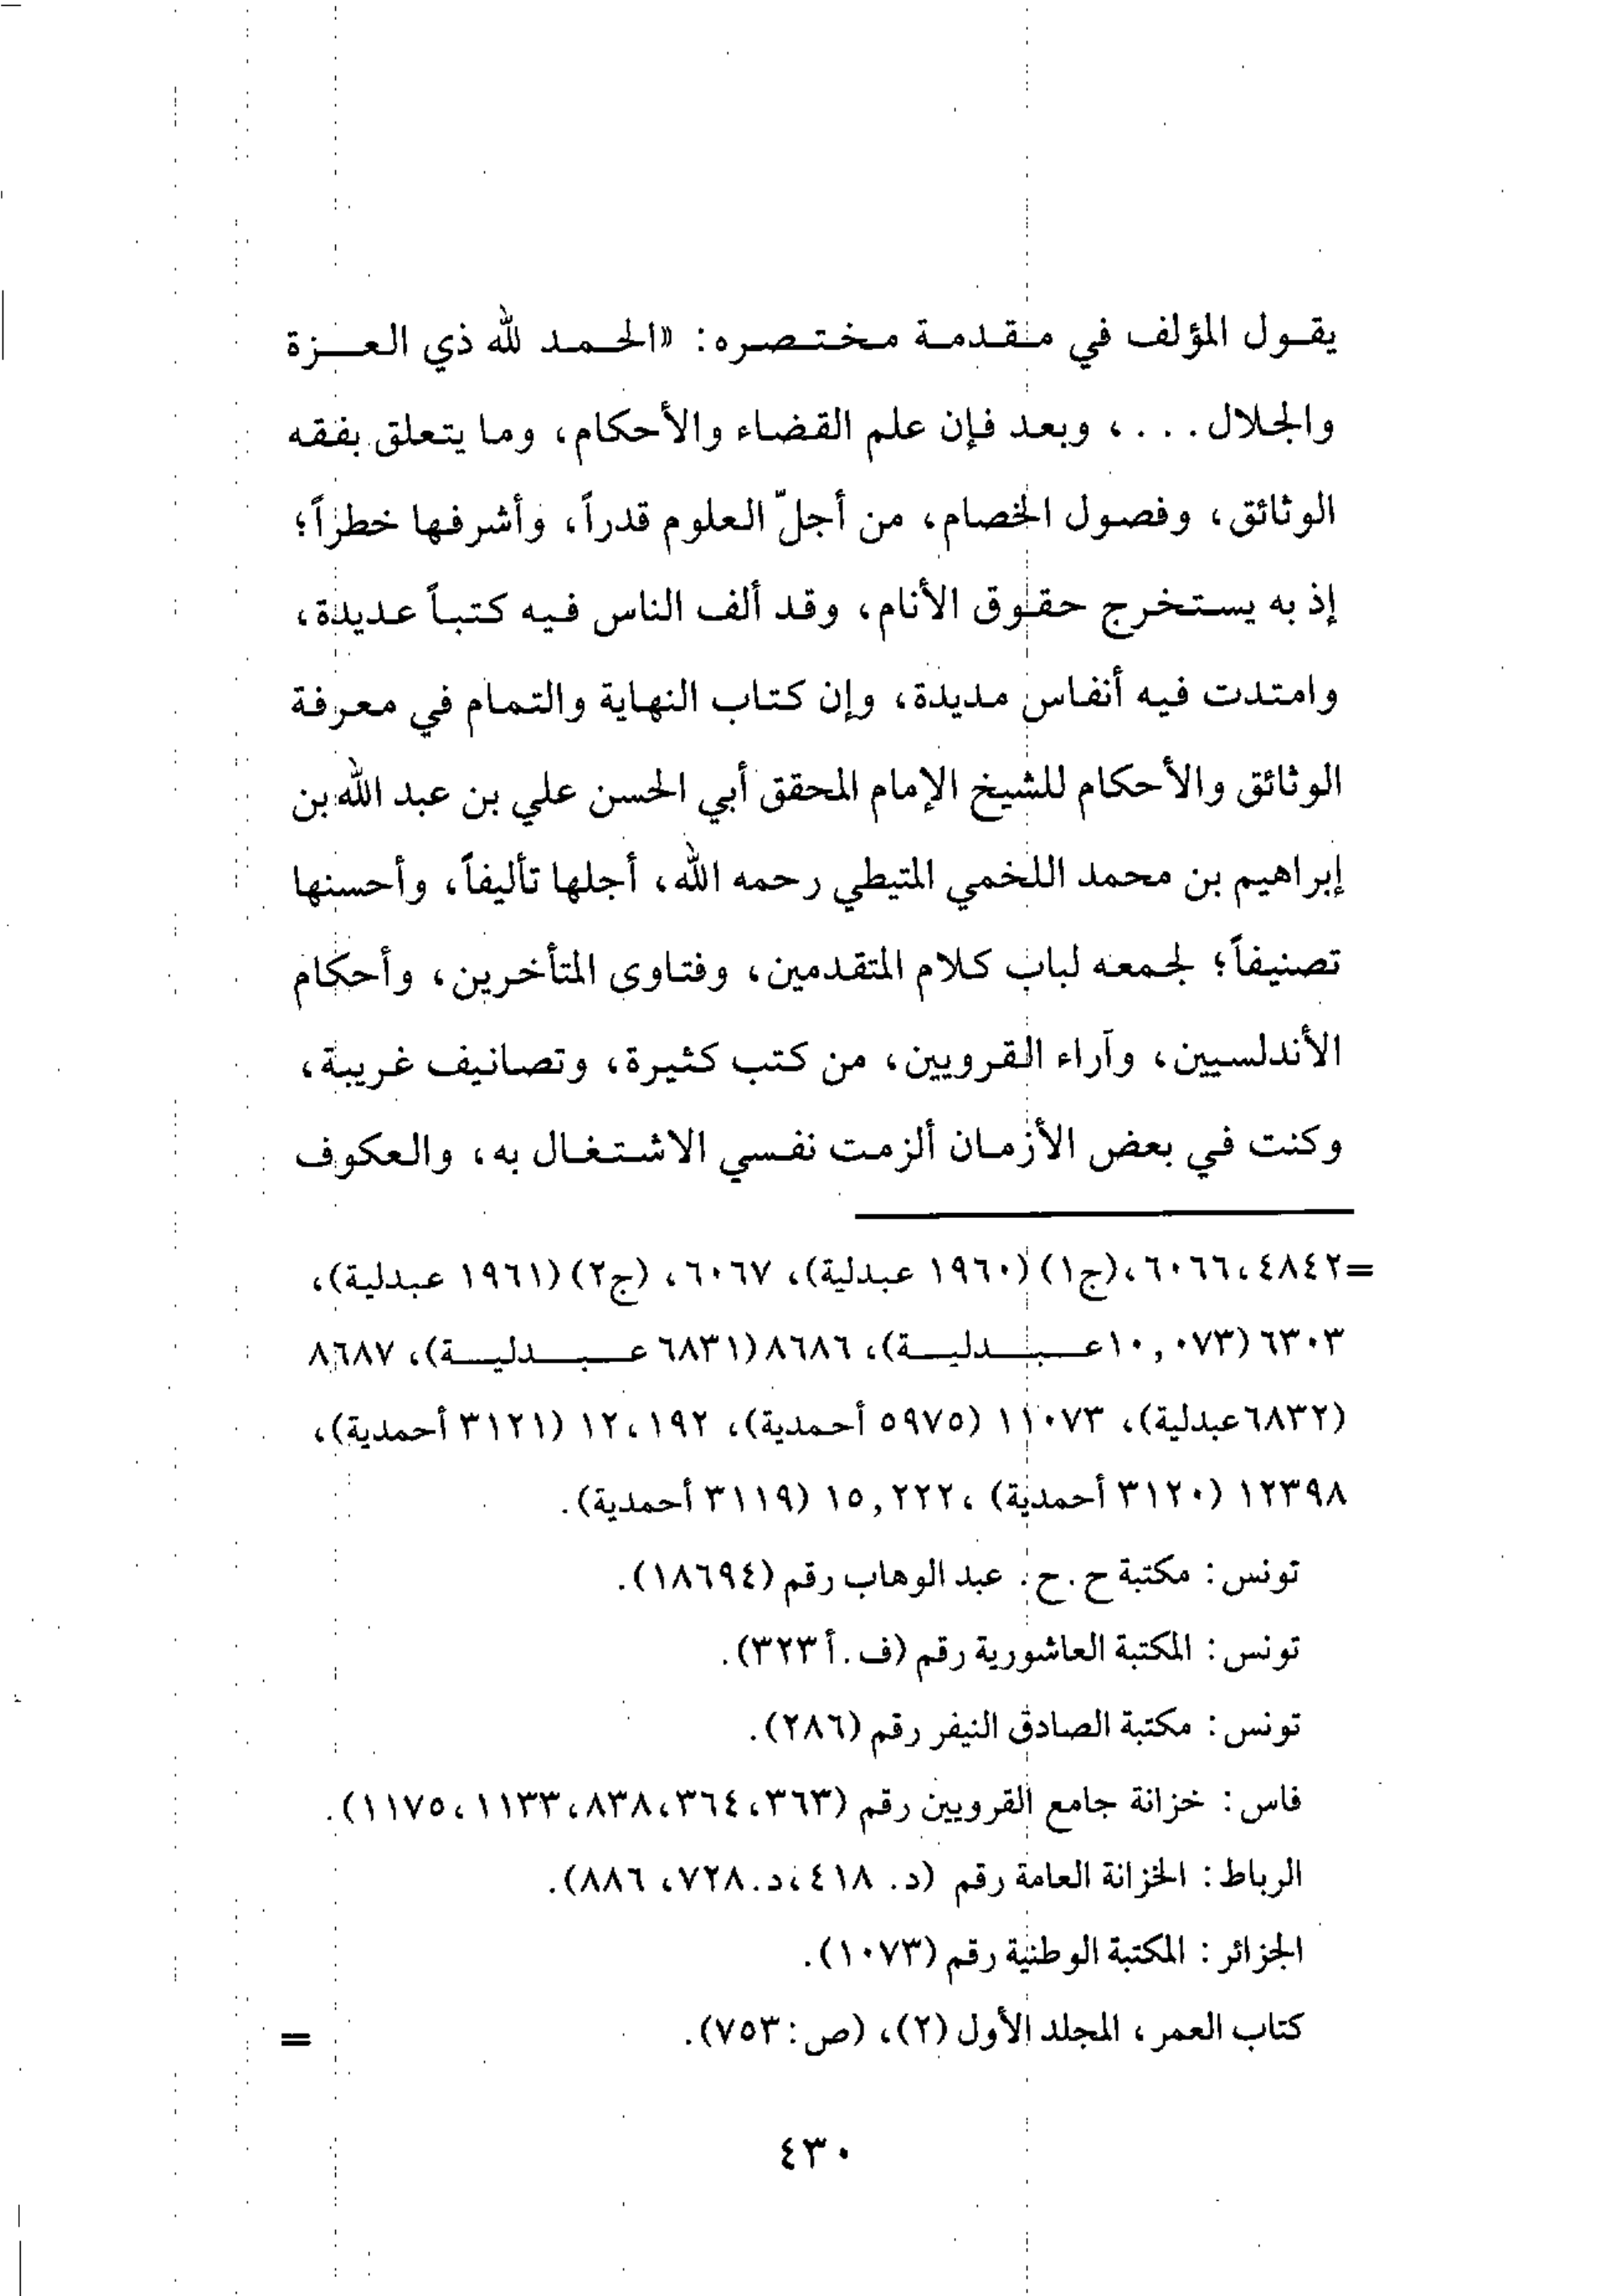 يقول المؤلف في مقدمة مختصره: «الحمد لله ذي العزة
والجلال...، وبعد فإن علم القضاء والأحكام، وما يتعلق بفقه
الوثائق، وفصول الخصام، من أجلّ العلوم قدراً، وأشرفها خطراً؛
إذ به يستخرج حقوق الأنام، وقد ألف الناس فيه كتباً عديدة،
وامتدت فيه أنفاس مديدة، وإن كتاب النهاية والتمام في معرفة
الوثائق والأحكام للشيخ الإمام المحقق أبي الحسن علي بن عبد الله بن
إبراهيم بن محمد اللخمي المتيطي رحمه الله، أجلها تأليفاً، وأحسنها
تصنيفاً؛ لجمعه لباب كلام المتقدمين، وفتاوى المتأخرين، وأحكام
الأندلسيين، وآراء القرويين، من كتب كثيرة، وتصانيف غريبة،
وكنت في بعض الأزمان ألزمت نفسي الاشتغال به، والعكوف
=٤٨٤٢، ٦٠٦٦،(ج١) (١٩٦٠ عبدلية)، ٦٠٦٧، (ج٢) (١٩٦١ عبدلية)،
٦٣٠٣ (١٠,٠٧٣عبدلية)، ٨٦٨٦ (٦٨٣١ عبدلية)، ٨٦٨٧
(٦٨٣٢عبدلية)، ١١٠٧٣ (٥٩٧٥ أحمدية)، ١٢،١٩٢ (٣١٢١ أحمدية)،
١٢٣٩٨ (٣١٢٠ أحمدية) ،١٥,٢٢٢ (٣١١٩ أحمدية).
تونس: مكتبة ح.ح. عبد الوهاب رقم (١٨٦٩٤).
تونس: المكتبة العاشورية رقم (ف.أ ٣٢٣).
تونس: مكتبة الصادق النيفر رقم (٢٨٦).
فاس: خزانة جامع القرويين رقم (٣٦٣، ٣٦٤، ٨٣٨، ١١٣٣، ١١٧٥).
الرباط: الخزانة العامة رقم (د. ٤١٨،د.٧٢٨، ٨٨٦).
الجزائر: المكتبة الوطنية رقم (١٠٧٣).
كتاب العمر، المجلد الأول (٢)، (ص:٧٥٣). =
٤٣٠